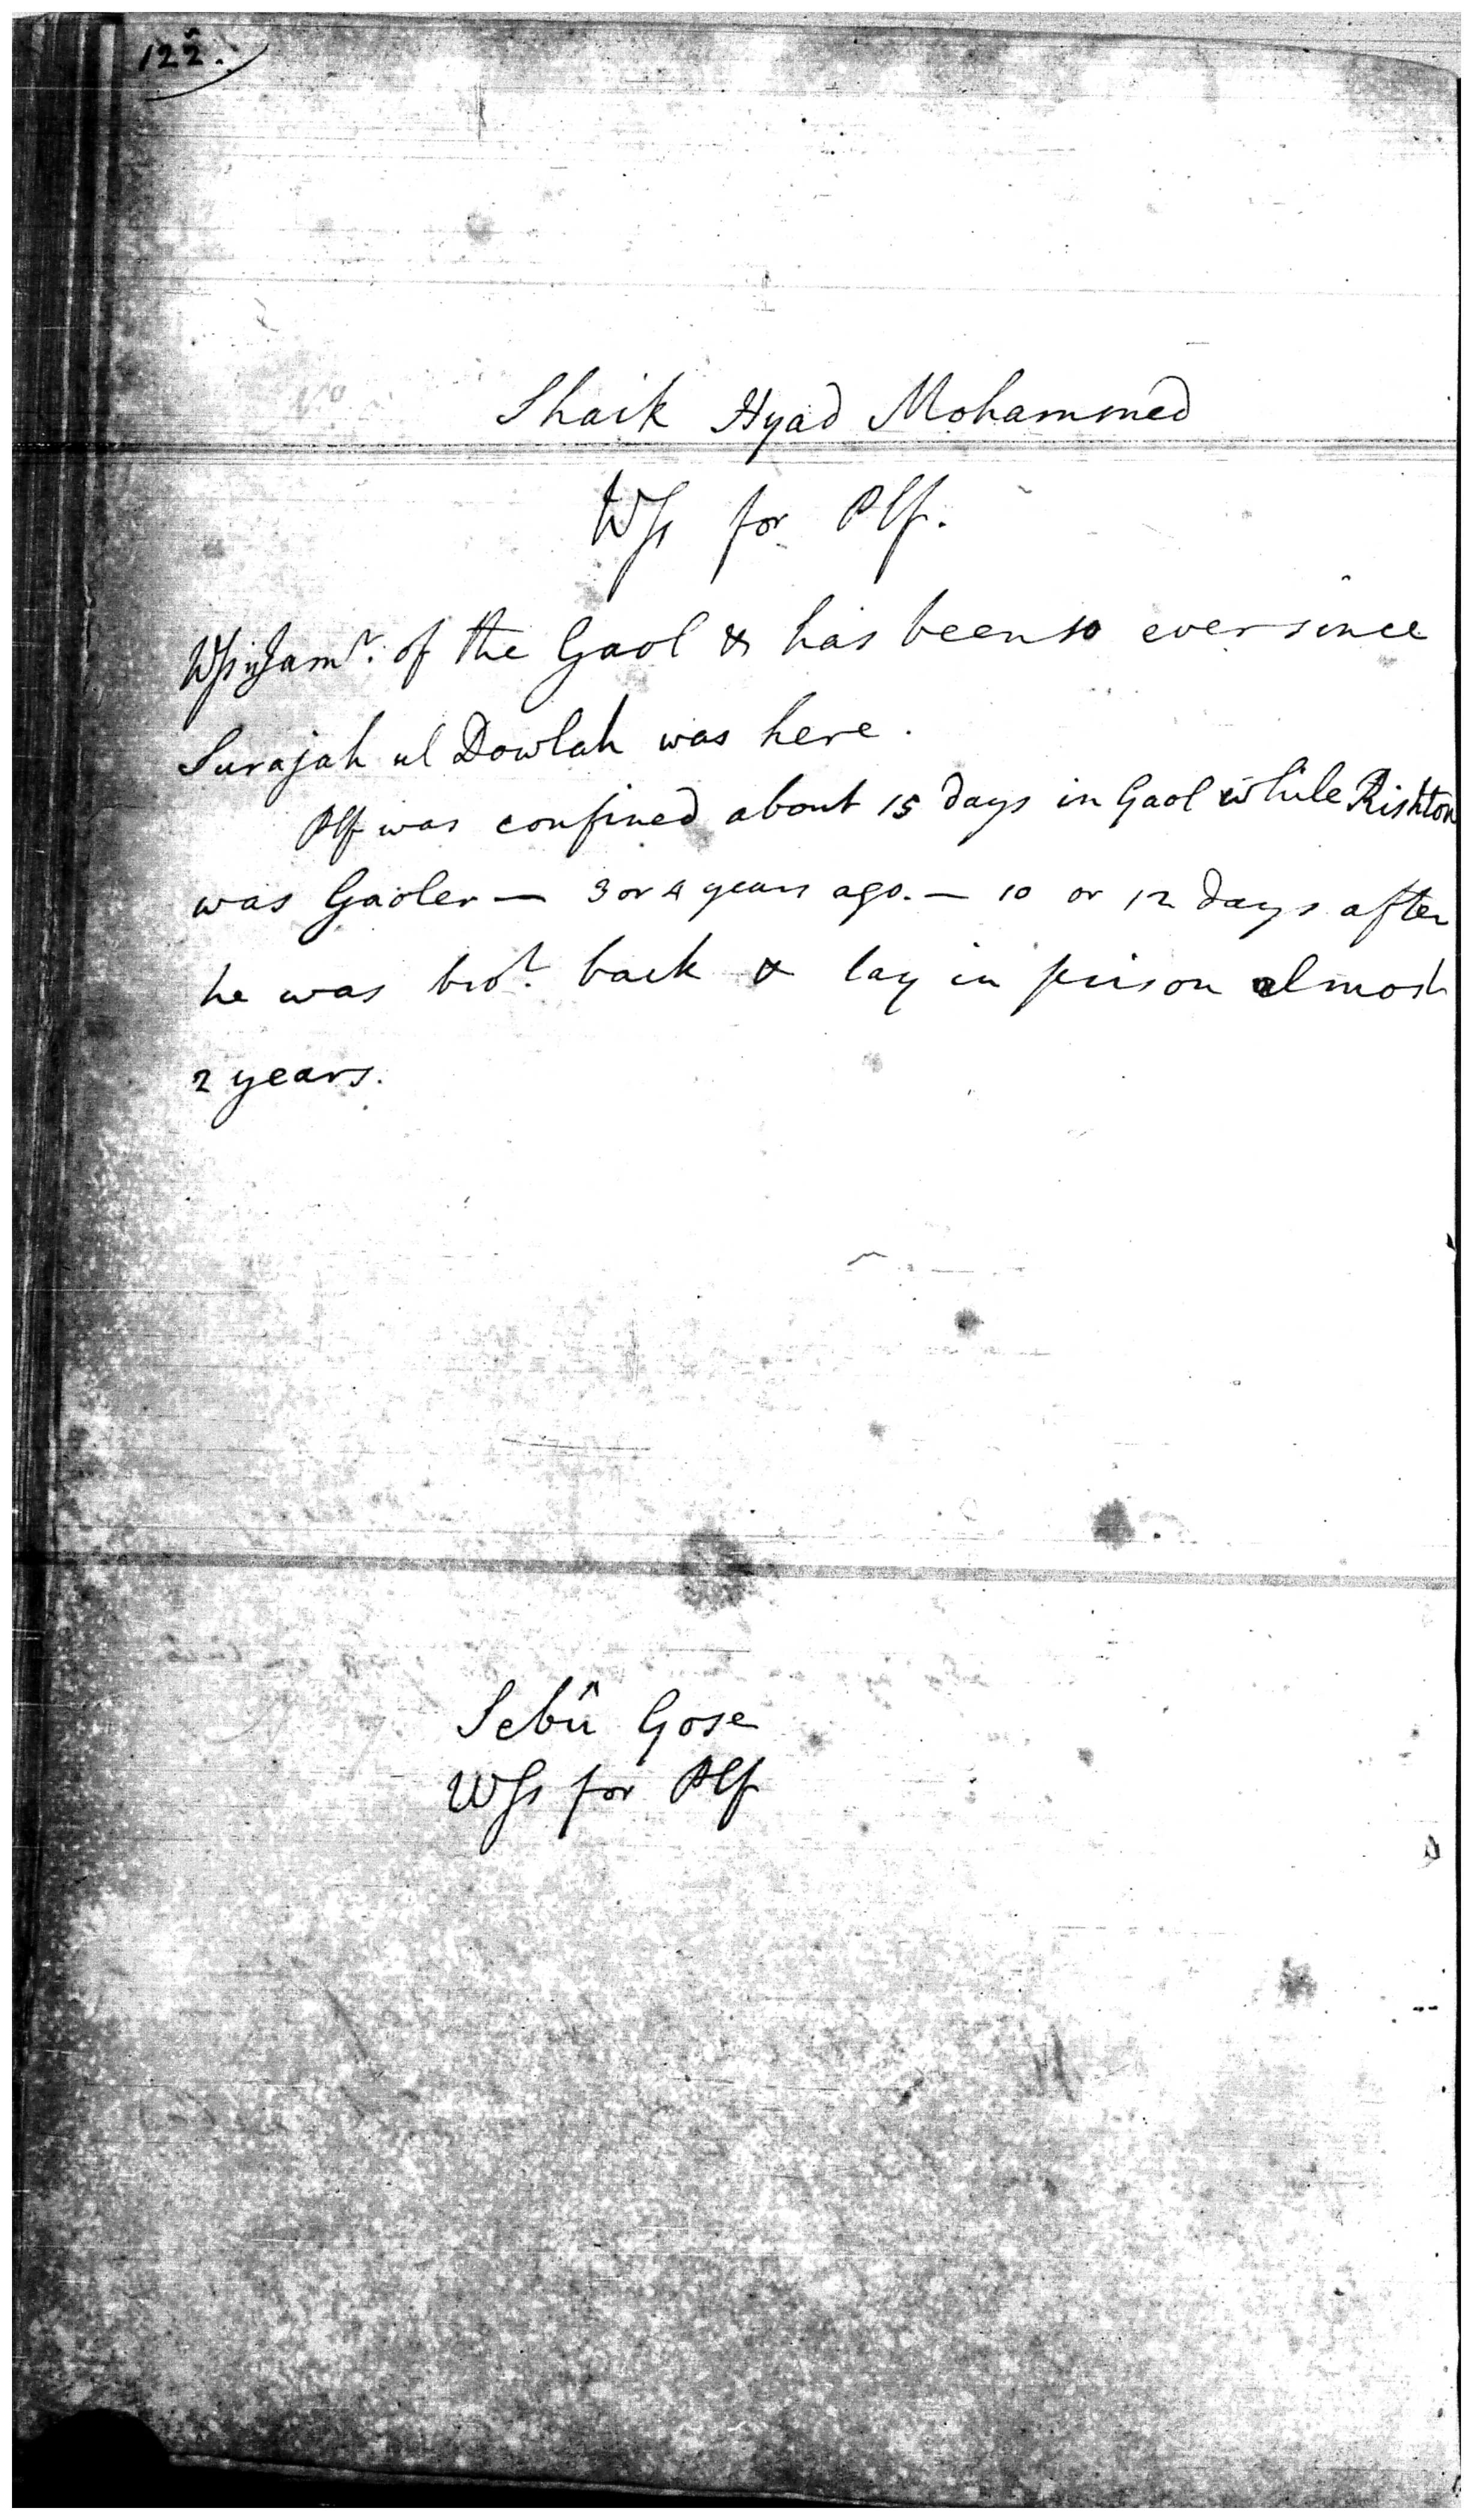 122.
Shaik Hyad Mohammed
Wss for Plf.
Wss is Jamr. of the Gaol & has been so ever since
Surajah ul Dowlah was here.
Plf was confined about 15 days in Gaol while Rishton
was Gaoler — 3 or 4 years ago. — 10 or 12 days after
he was brot. back & lay in prison almost
2 years.
Sebû Gose
Wss for Plf